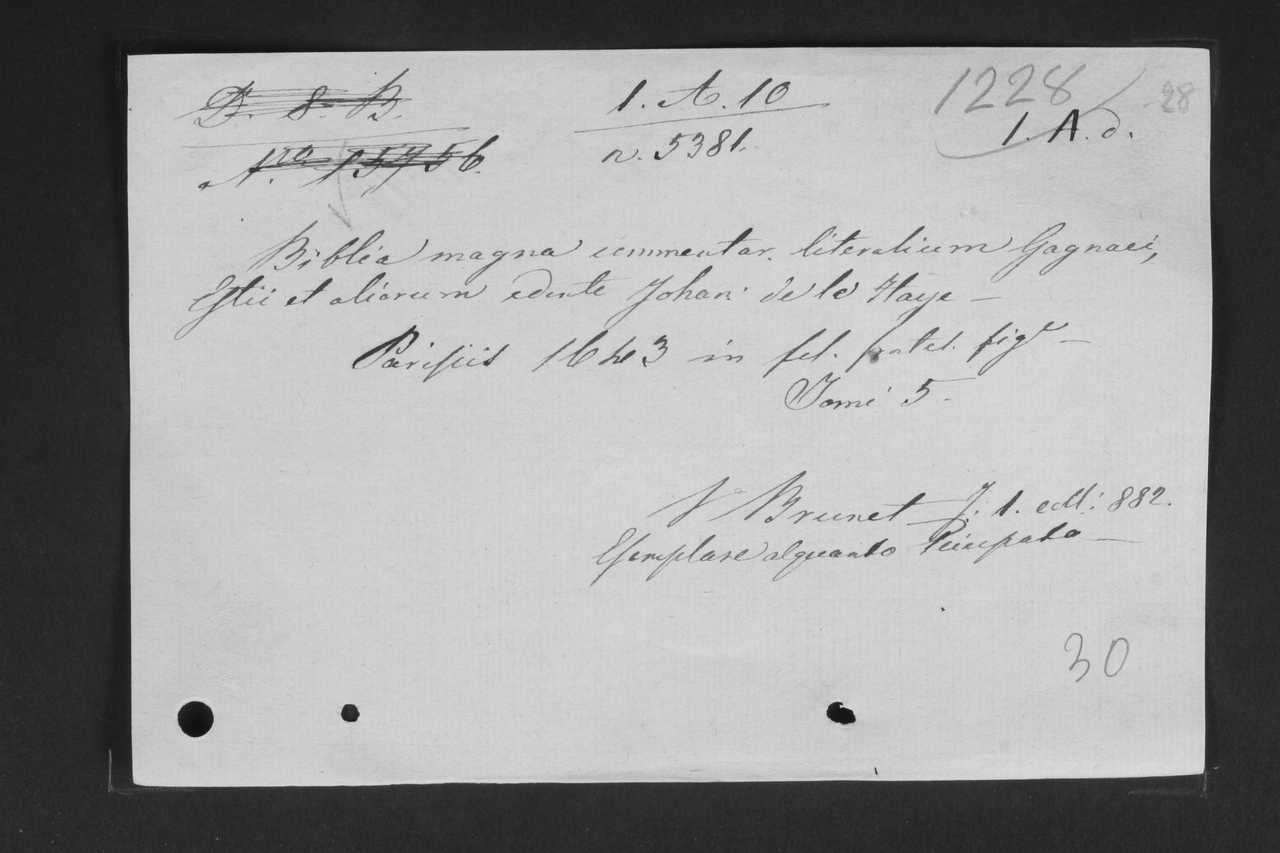 D. 8. B.
1. A. 10
1228
28
n. 5381.
1. A. d.
N.ro 15756.
Biblia magna commentar. literalium Gagnaei,
Estii et aliorum edente Johan: de la Haye —
Parisiis 1643 in fol. fig.e —
Tomi 5.
V Brunet T. 1. coll: 882.
Esemplare alquanto —
30